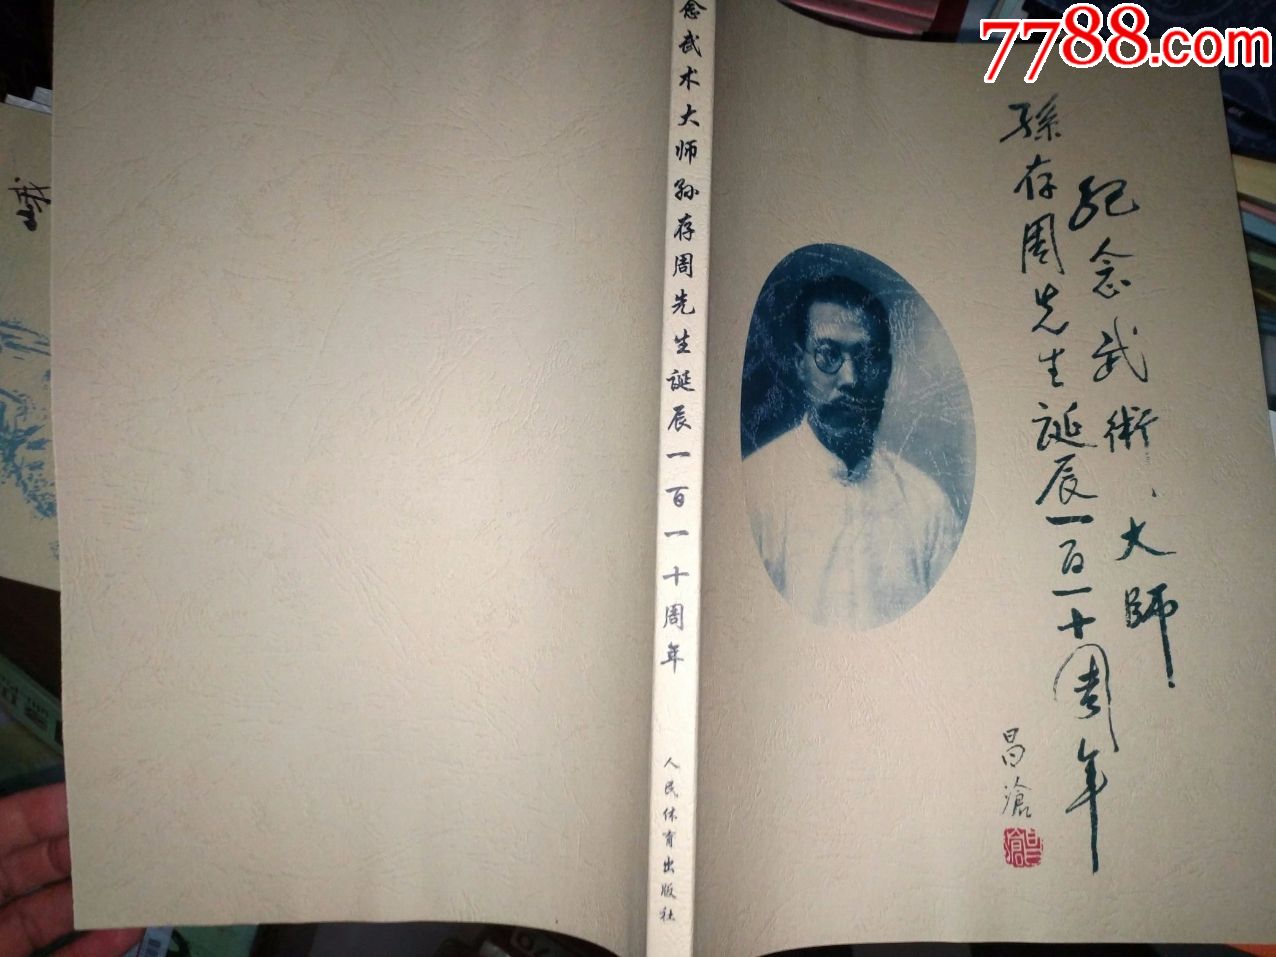 7788.com
紀念武術大師
孫存周先生誕辰一百一十周年
昌滄
念武术大师孙存周先生诞辰一百一十周年
人民体育出版社
峨